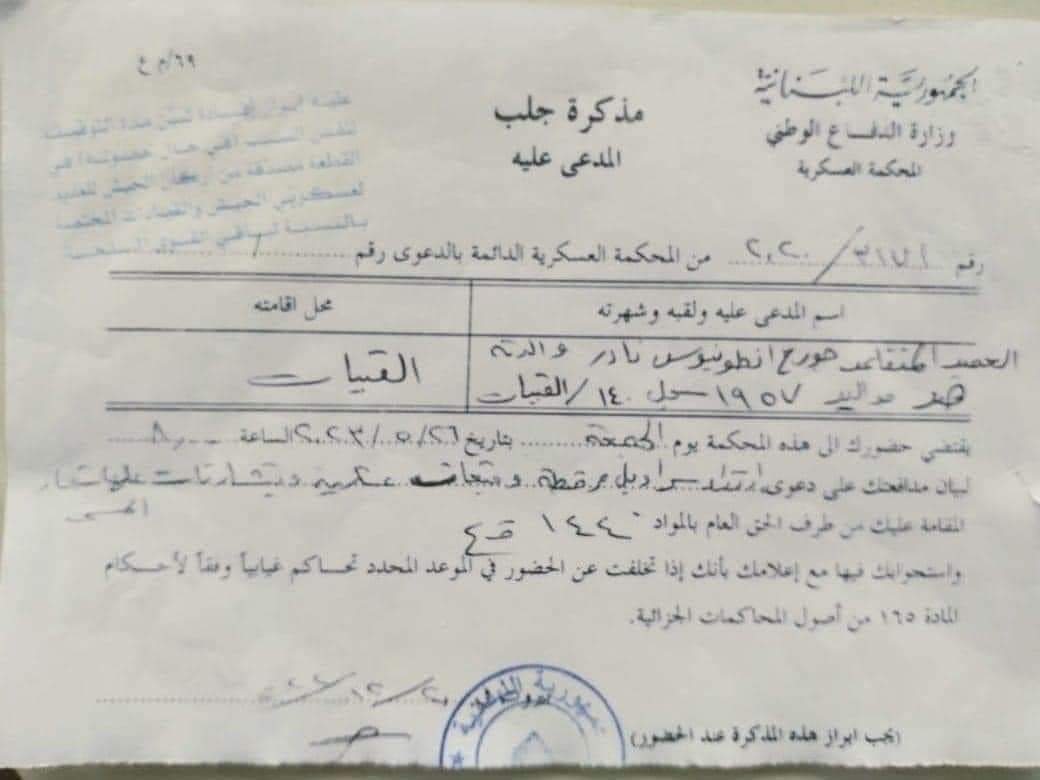 ٦٩/م ع
الجمهورية اللبنانية
وزارة الدفاع الوطني
المحكمة العسكرية
مذكرة جلب
المدعى عليه
رقم ٣١٧١/٢٠٢٠ من المحكمة العسكرية الدائمة بالدعوى رقم
اسم المدعى عليه ولقبه وشهرته
محل اقامته
العميد المتقاعد جورج انطونيوس نادر والدته
هند مواليد ١٩٥٧ سجل ١٤٠/القبيات
القبيات
يقتضي حضورك الى هذه المحكمة يوم الجمعة بتاريخ ٢٠٢٣/٥/٢٦ الساعة ٨,٠٠
لبيان مدافعتك على دعوى ارتداء سراويل مرقطة وقبعات عسكرية وشارات عليها شعار
الجيش
المقامة عليك من طرف الحق العام بالمواد ١٤٤ ق ع
واستجوابك فيها مع إعلامك بأنك إذا تخلفت عن الحضور في الموعد المحدد تحاكم غيابياً وفقاً لأحكام
المادة ١٦٥ من أصول المحاكمات الجزائية.
(يجب ابراز هذه المذكرة عند الحضور)